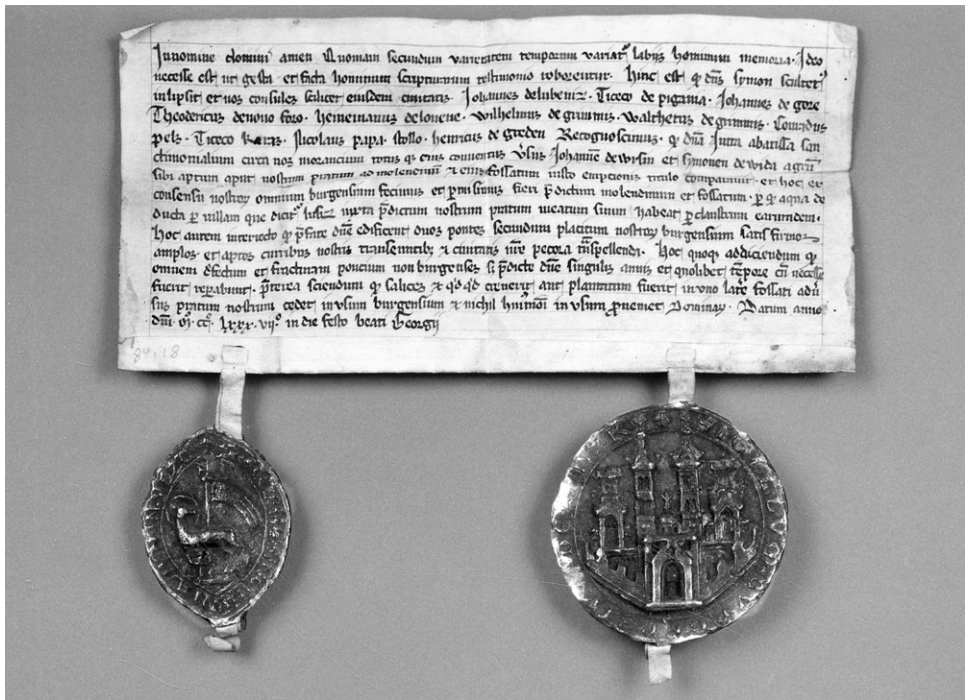 In nomine domini amen Quoniam secundum varietatem temporum variatur labilis hominum memoria. Ideo
necesse est ut gesta et facta hominum scripturarum testimonio roborentur. Hinc est quod dns symon
et nos consules scilicet eiusdem civitatis. Johannes de Ticeco de pigavia. Johannes de gore
Theodericus de novo foro. Heinemannus de lonene. Wilhelmus de grimmis. Waltherus de grimmis. Conradus
pels. Ticeco Nicolaus papa. stollo. henricus de greden Recognoscimus. qd dna Jutta abatissa san
ctimonialium circa nos morancium totus qz eius conventus Johannem de wrsin et symonem de wida agrum
sibi aptum apud nostrum pratum ad molendinum & eius fossatum iusto emptionis titulo comparavit. et hoc ex
consensu nostrorum omnium burgensium fecimus et permisimus fieri predictum molendinum et fossatum. per qd aqua de
ducta per villam que dicitur lusiz iuxta predictum nostrum pratum meatum suum habeat per claustrum earumdem.
Hoc autem interiecto qd prefate dne edificent duos pontes secundum placitum nostrorum burgensium satis firmos
amplos. et aptos curribus nostris transeuntibus & civitatis nre pecora
omnem defectum et fracturam poncium non burgenses sed predicte dne singulis annis et quolibet tempore cum necesse
fuerit reparabunt. preterea sciendum qd salices & qdqd creverit aut plantatum fuerit in uno latere fossati
sus pratum nostrum cedet in usum burgensium & nichil in usum proveniet Dominarum. Datum anno
dni. mo. cco. lxxxo. viio. in die festo beati Georgii
84,18